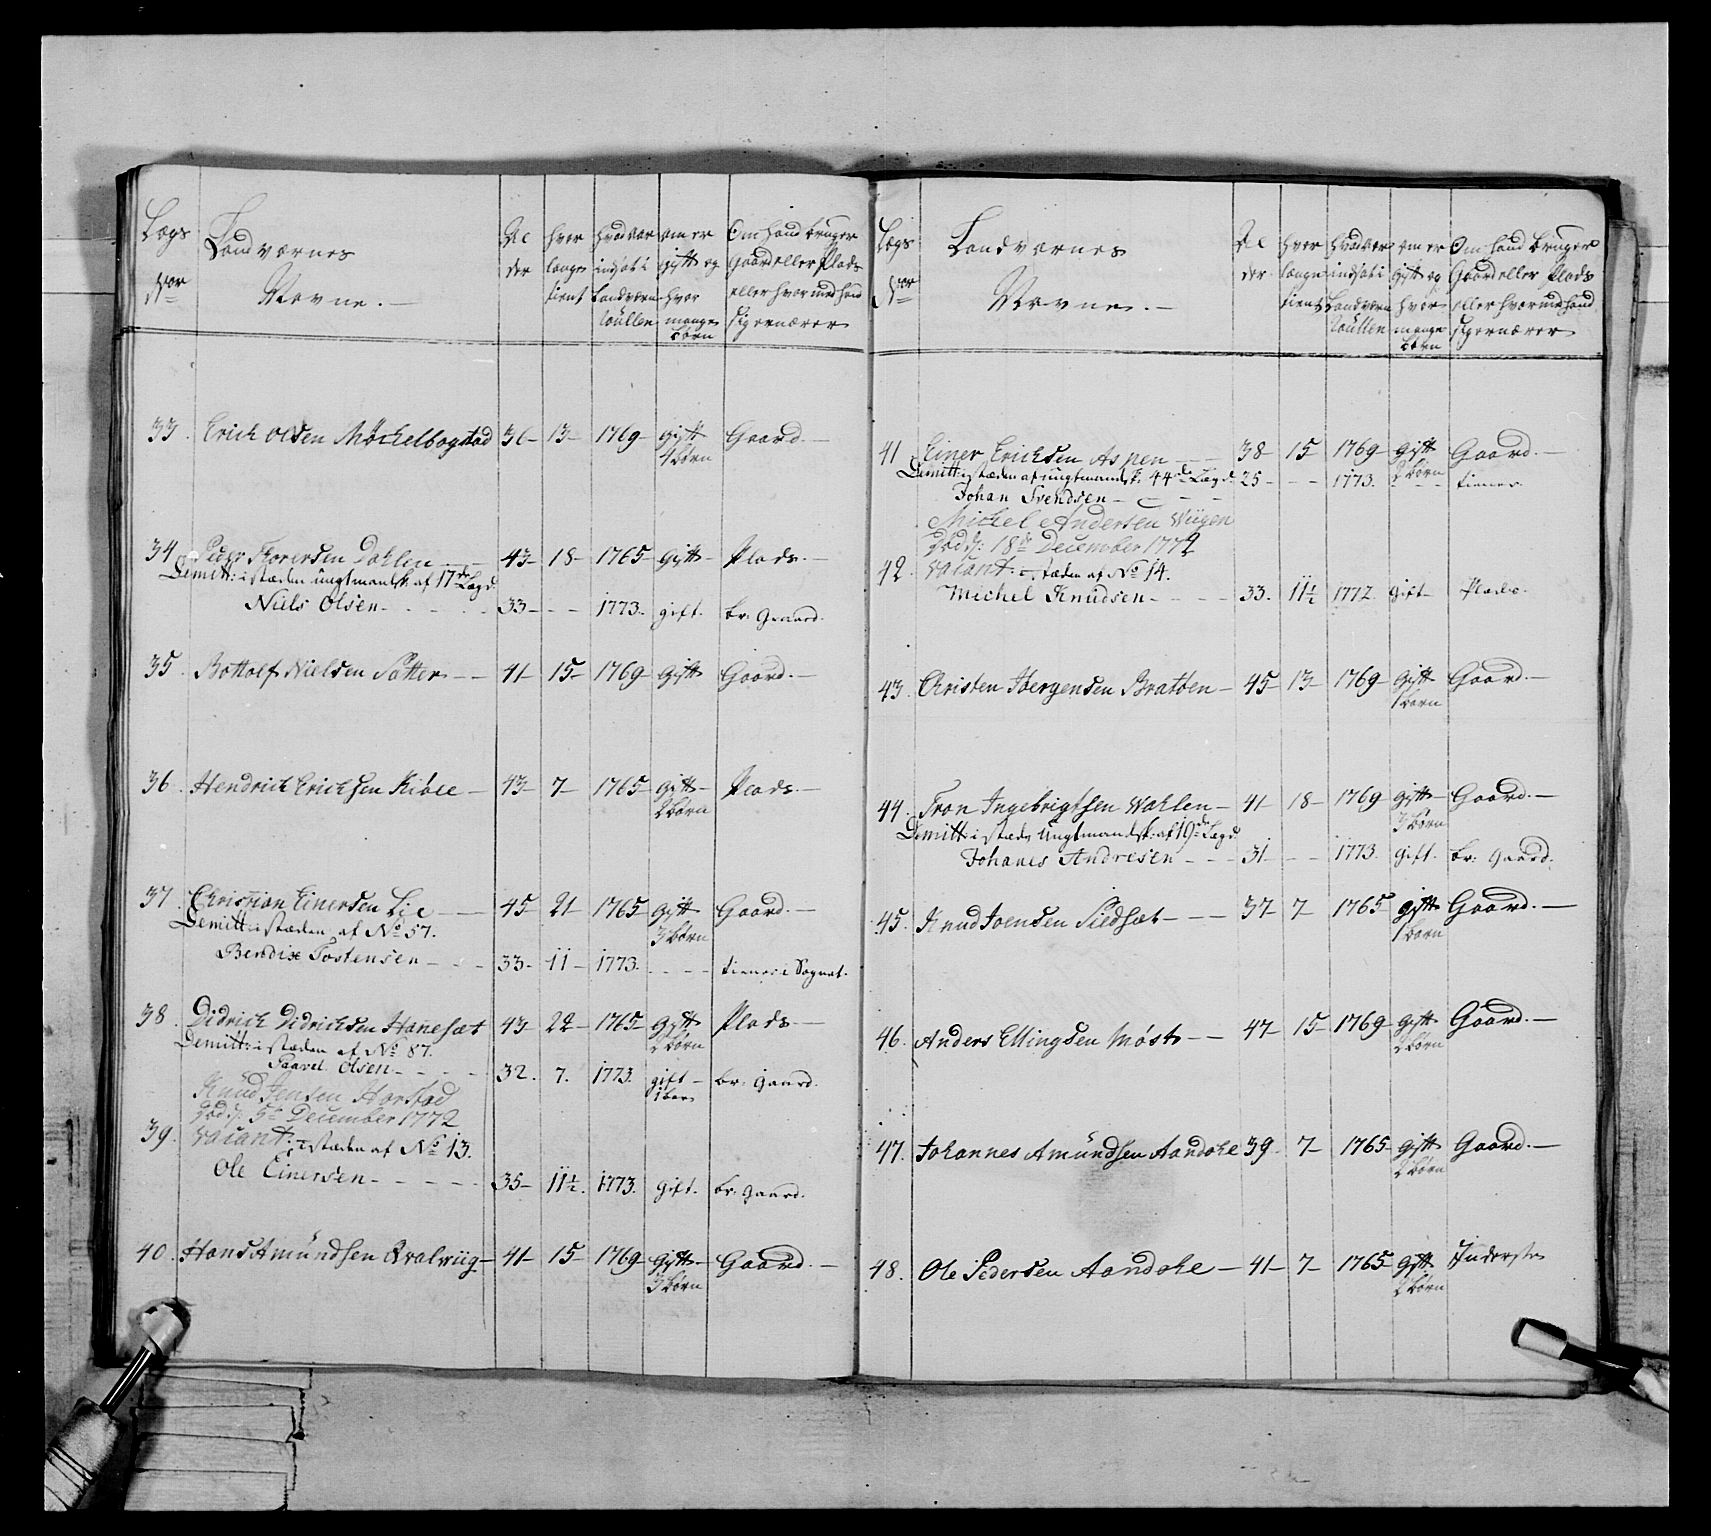 Lægs Nor
Landværnes Navne.
Al der
hvor længe tient
hvad aar indsat i Landværn Roullen
om er gift og hvor mange børn
Om hand bruger Gaard eller Plads eller hvor med hand sig ernærer
33. Erich Olsen Møchelbogstad 36 13 1769 gift 4 børn Gaard.
34. Peder Thorersen Dahlen 43 18 1765 gift Plads.
Demitt: i stæden ungtmandsk: af 17de Lægd.
Niels Olsen 33 - 1773. gift. br: Gaard.
35. Bottolf Nielsen Sætter 41 15 1769 gift Gaard.
36. Hendrich Erichsen Kiøle 43 7 1765 gift 2 børn Plads.
37. Christian Einersen Lie 45 21 1765 gift 3 børn Gaard.
Demitt: i stæden af No 57.
Bendix Tostensen 33 11 1773. - tiener i Sognet.
38. Didrich Didrichsen Hanesæt 43 22 1765 gift 2 børn Plads
Demitt: i stæden af No 87.
Paavel Olsen 32. 7. 1773. gift 1 barn br: gaard.
Knud Jensen Harstad
Død d: 5te December 1772
39. vacant: i stæden af No 13.
Ole Einersen 35 11½. 1773. gift. br: gaard.
40. Hans Amundsen Qvalviig 41 15 1769 gift 3 børn Gaard.
Lægs Nor
Landværnes Navne.
Al der
hvor længe tient
hvad aar indsat i Landværn Roullen
om er gift og hvor mange børn
Om hand bruger Gaard eller Plads eller hvor med hand sig ernærer
41. Einer Erichsen Aspen 38 15 1769 gift 2 børn Gaard.
Demitt: i stæden af ungtmandsk: 44de Lægd.
Johan Svendsen 25 - 1773. - tiener.
Michel Andersen Wiigen
Død d: 18de December 1772
42. vacant: i stæden af No 14.
Michel Knudsen 33. 11½ 1772. gift Plads.
43. Christen Jørgensen Bratøen 45 13 1769 gift 1 børn Gaard.
44. Tron Ingebrigtsen Wahlen 41 18 1769 gift 3 børn Gaard.
Demitt: i stæde ungtmandsk: af 19de Lægd
Johanes Andresen 31 - 1773. gift. br: gaard.
45. Knud Joensen Siedsæt 37 7 1765 gift 1 børn Gaard.
46. Anders Ellingsen Møst 47 15 1769 gift 2 børn Gaard.
47. Johannes Amundsen Aandahl 39 7 1765 gift 2 børn Gaard.
48. Ole Pedersen Aandahl 41 7 1765 gift 2 børn Inderste